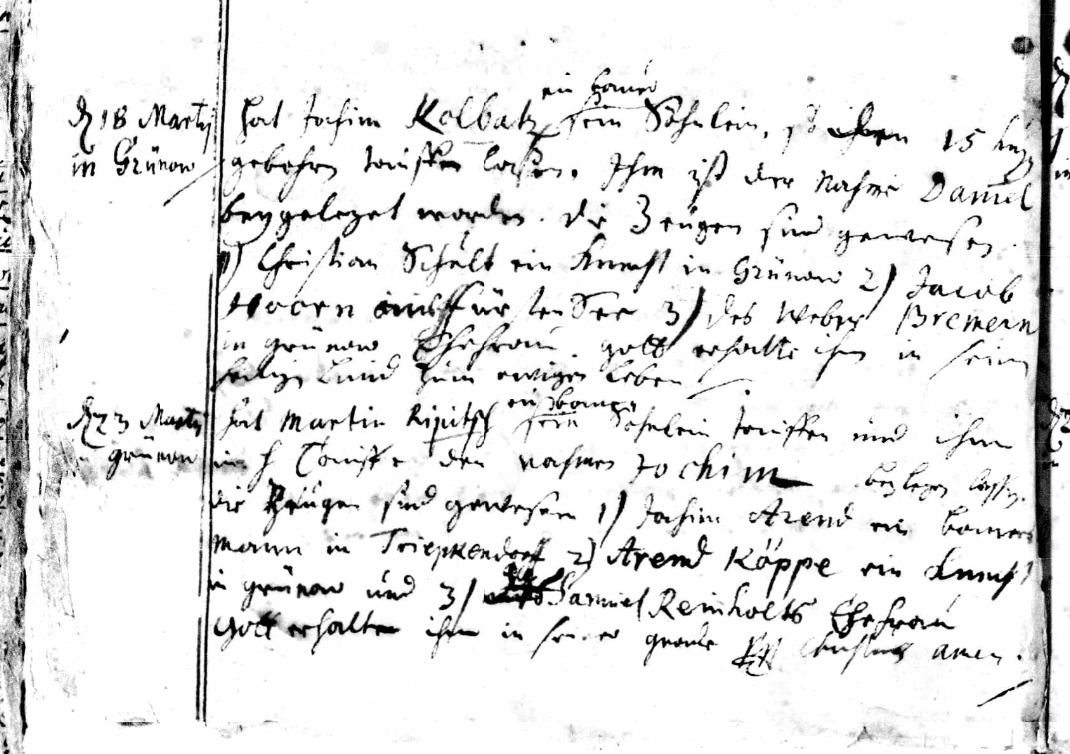 ein bauer
d 18 Martij hat Jochim Kolbatz sein Söhnlein, so den 15 huj
in Grünow gebohrn tauffen laßen. Ihm ist der Nahme Daniel
beygeleget worden. die Zeugen sind gewesen
1) Christian Schült ein Knecht in Grünow 2) Jacob
Hoorn aus Fürstensee 3) des Weber Bremern
in grünow Ehefrau. gott erhalte ihn in seinem
zum ewigen leben
ein bauer
d 23 Martij hat Martin Ripitsch sein Söhnlein tauffen und ihm
in grünow in h Tauffe den nahmen Jochim beylegen laßen.
die Zeugen sind gewesen 1) Jochim Arend ein bauers
mann in Triepkendorff 2) Arend Köppe ein Knecht
in grünow und 3) Samuel Reinholts Ehefrau
Gott erhalte ihn in seiner gnade Christus amen.